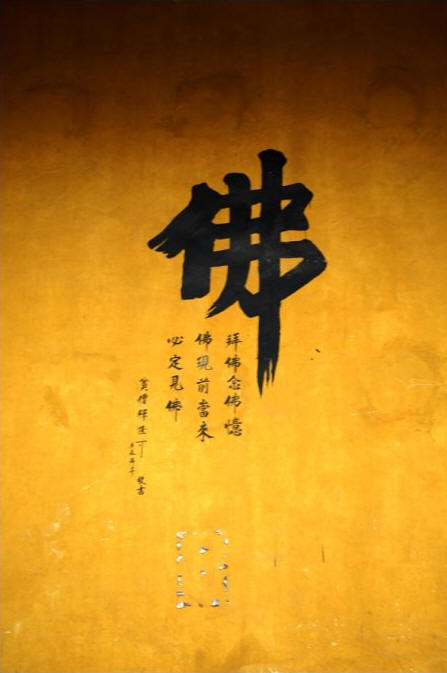 佛
拜佛念佛憶
佛現前當來
必定見佛
敬書